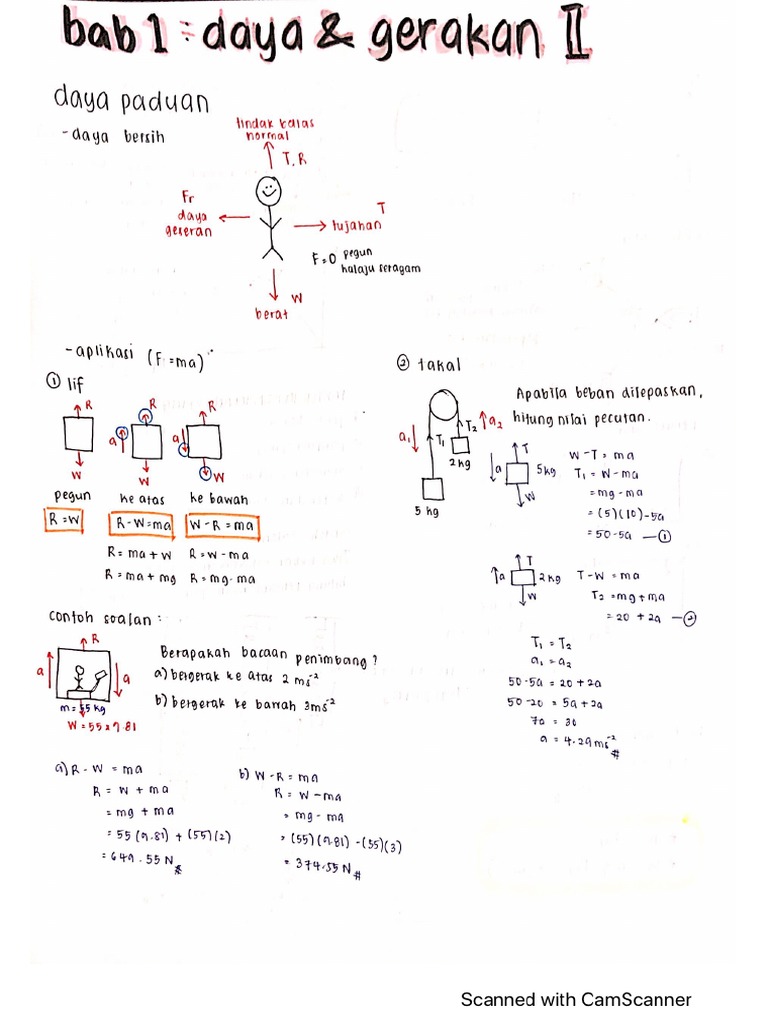 bab 1 : daya & gerakan II
daya paduan
- daya bersih
tindak balas
normal
T, R
Fr
daya
geseran
T
tujahan
F=0 pegun
halaju seragam
W
berat
- aplikasi (F=ma)
① lif
R
R
R
a
a
W
W
W
pegun
ke atas
ke bawah
R=W
R-W=ma
W-R=ma
R=ma+W
R=W-ma
R=ma+mg
R=mg-ma
contoh soalan :
R
a
a
m=55kg
W=55x9.81
Berapakah bacaan penimbang?
a) bergerak ke atas 2 ms⁻²
b) bergerak ke bawah 3ms⁻²
a) R-W=ma
R=W+ma
=mg+ma
=55(9.81)+(55)(2)
=649.55N#
b) W-R=ma
R=W-ma
=mg-ma
=(55)(9.81)-(55)(3)
=374.55N#
② takal
a₁
T₁
T₂
a₂
2kg
5 kg
Apabila beban dilepaskan,
hitung nilai pecutan.
T
a
5kg
W
W-T=ma
T₁=W-ma
=mg-ma
=(5)(10)-5a
=50-5a —①
T
a
2kg
W
T-W=ma
T₂=mg+ma
=20+2a —②
T₁=T₂
a₁=a₂
50-5a=20+2a
50-20=5a+2a
7a=30
a=4.29ms⁻²#
Scanned with CamScanner